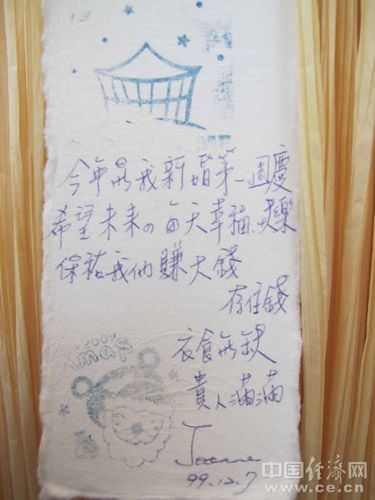 今年是我新婚第一週慶
希望未來の每天幸福、快樂
保祐我們賺大錢
存住錢
衣食無缺
貴人滿滿
Joanne
99.12.7
中国经济网
www.ce.cn